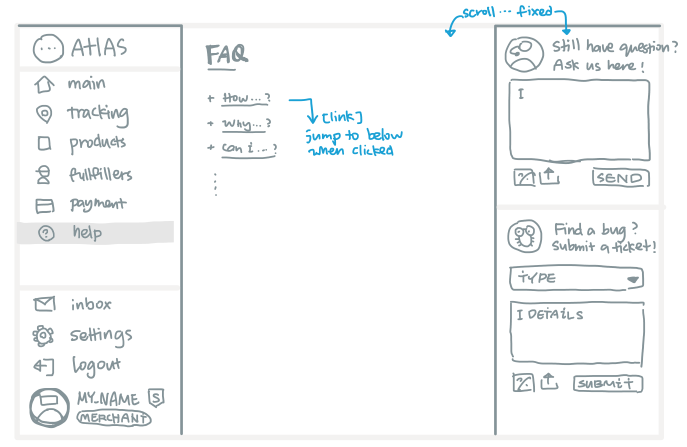 scroll ... fixed
ATLAS
main
tracking
products
fullfillers
payment
help
inbox
settings
logout
MY_NAME S
MERCHANT
FAQ
+ How...?
+ Why...?
+ can i ... ?
[link]
jump to below
when clicked
Still have question?
Ask us here!
I
SEND
Find a bug?
Submit a ticket!
TYPE
I DETAILS
SUBMIT